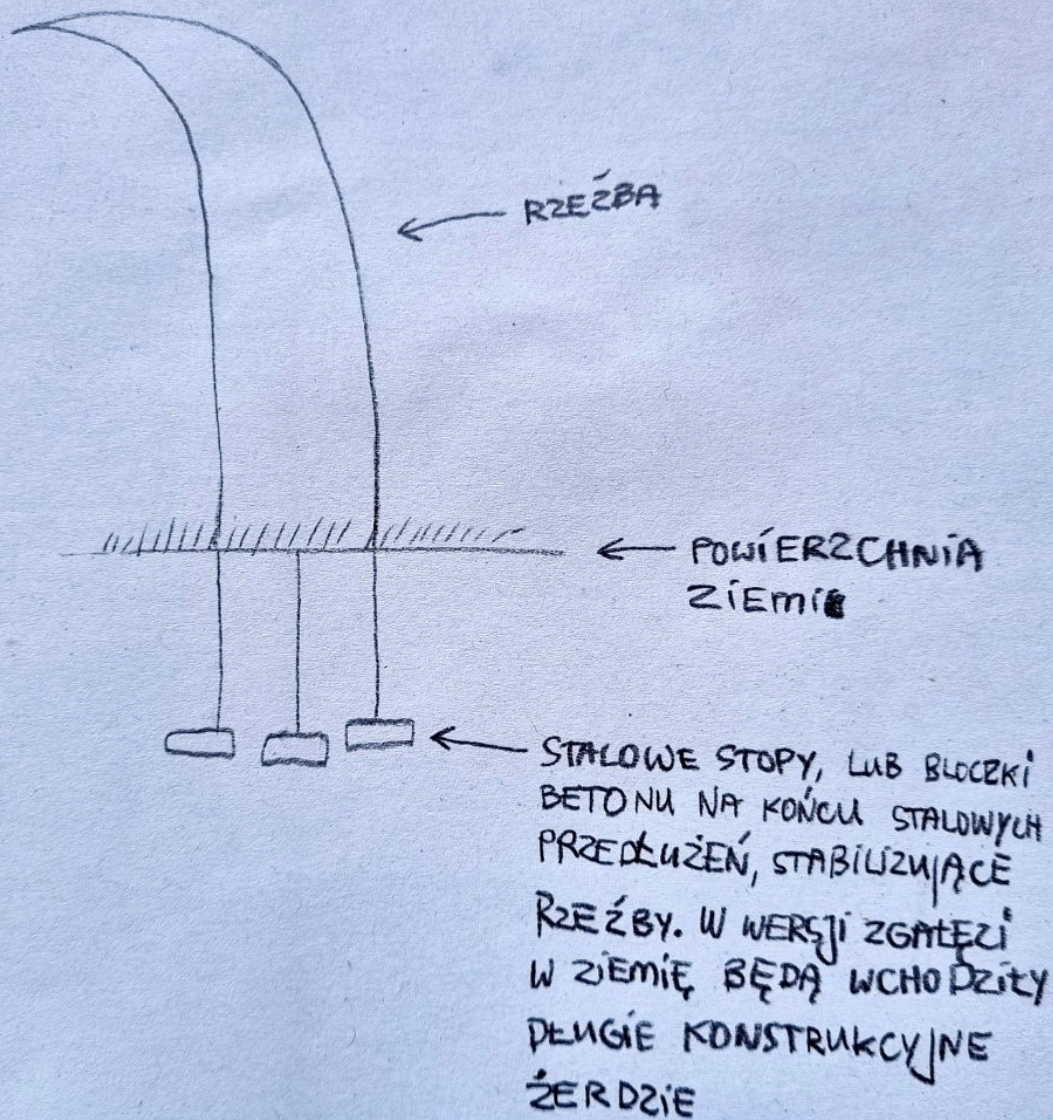 RZEŹBA
POWIERZCHNIA
ZIEMI
STALOWE STOPY, LUB BLOCZKI
BETONU NA KOŃCU STALOWYCH
PRZEDŁUŻEŃ, STABILIZUJĄCE
RZEŹBY. W WERSJI Z GAŁĘZI
W ZIEMIĘ BĘDĄ WCHODZIŁY
DŁUGIE KONSTRUKCYJNE
ŻERDZIE